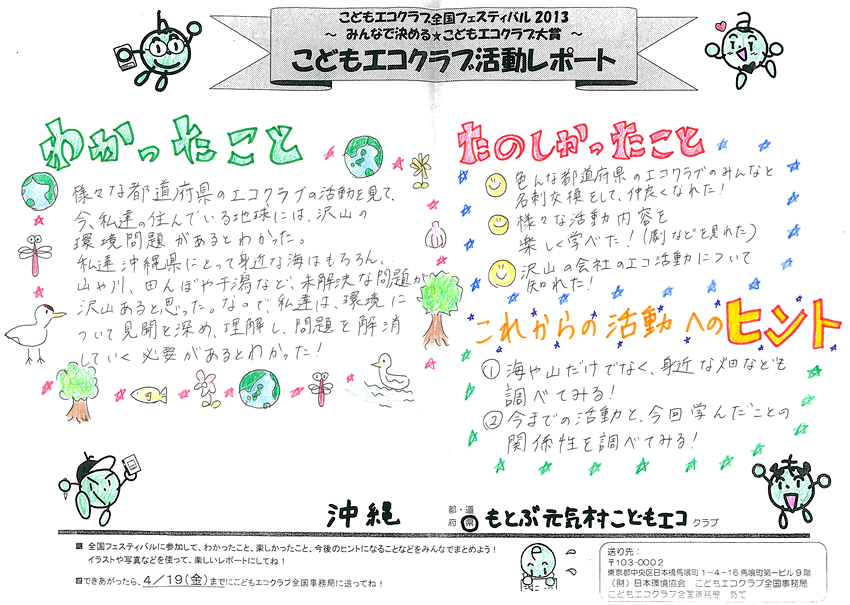 こどもエコクラブ全国フェスティバル 2013
～ みんなで決める★こどもエコクラブ大賞 ～
こどもエコクラブ活動レポート
わかったこと
様々な都道府県のエコクラブの活動を見て、
今、私達の住んでいる地球には、沢山の
環境問題があるとわかった。
私達沖縄県にとって身近な海はもちろん、
山や川、田んぼや干潟など、未解決な問題が
沢山あると思った。なので、私達は、環境に
ついて見聞を深め、理解し、問題を解消
していく必要があるとわかった！
たのしかったこと
色んな都道府県のエコクラブのみんなと
名刺交換をして、仲良くなれた！
様々な活動内容を
楽しく学べた！(劇などを見れた)
沢山の会社のエコ活動について
知れた！
これからの活動へのヒント
① 海や山だけでなく、身近な畑などを
調べてみる！
② 今までの活動と、今回学んだことの
関係性を調べてみる！
沖縄 都・道 府・県 もとぶ元気村こどもエコ クラブ
全国フェスティバルに参加して、わかったこと、楽しかったこと、今後のヒントになることなどをみんなでまとめよう！
イラストや写真などを使って、楽しいレポートにしてね！
できあがったら、4／19(金)までにこどもエコクラブ全国事務局に送ってね！
送り先：
〒103-0002
東京都中央区日本橋馬喰町1－4－16 馬喰町第一ビル9階
（財）日本環境協会 こどもエコクラブ全国事務局
こどもエコクラブ全国事務局 あて